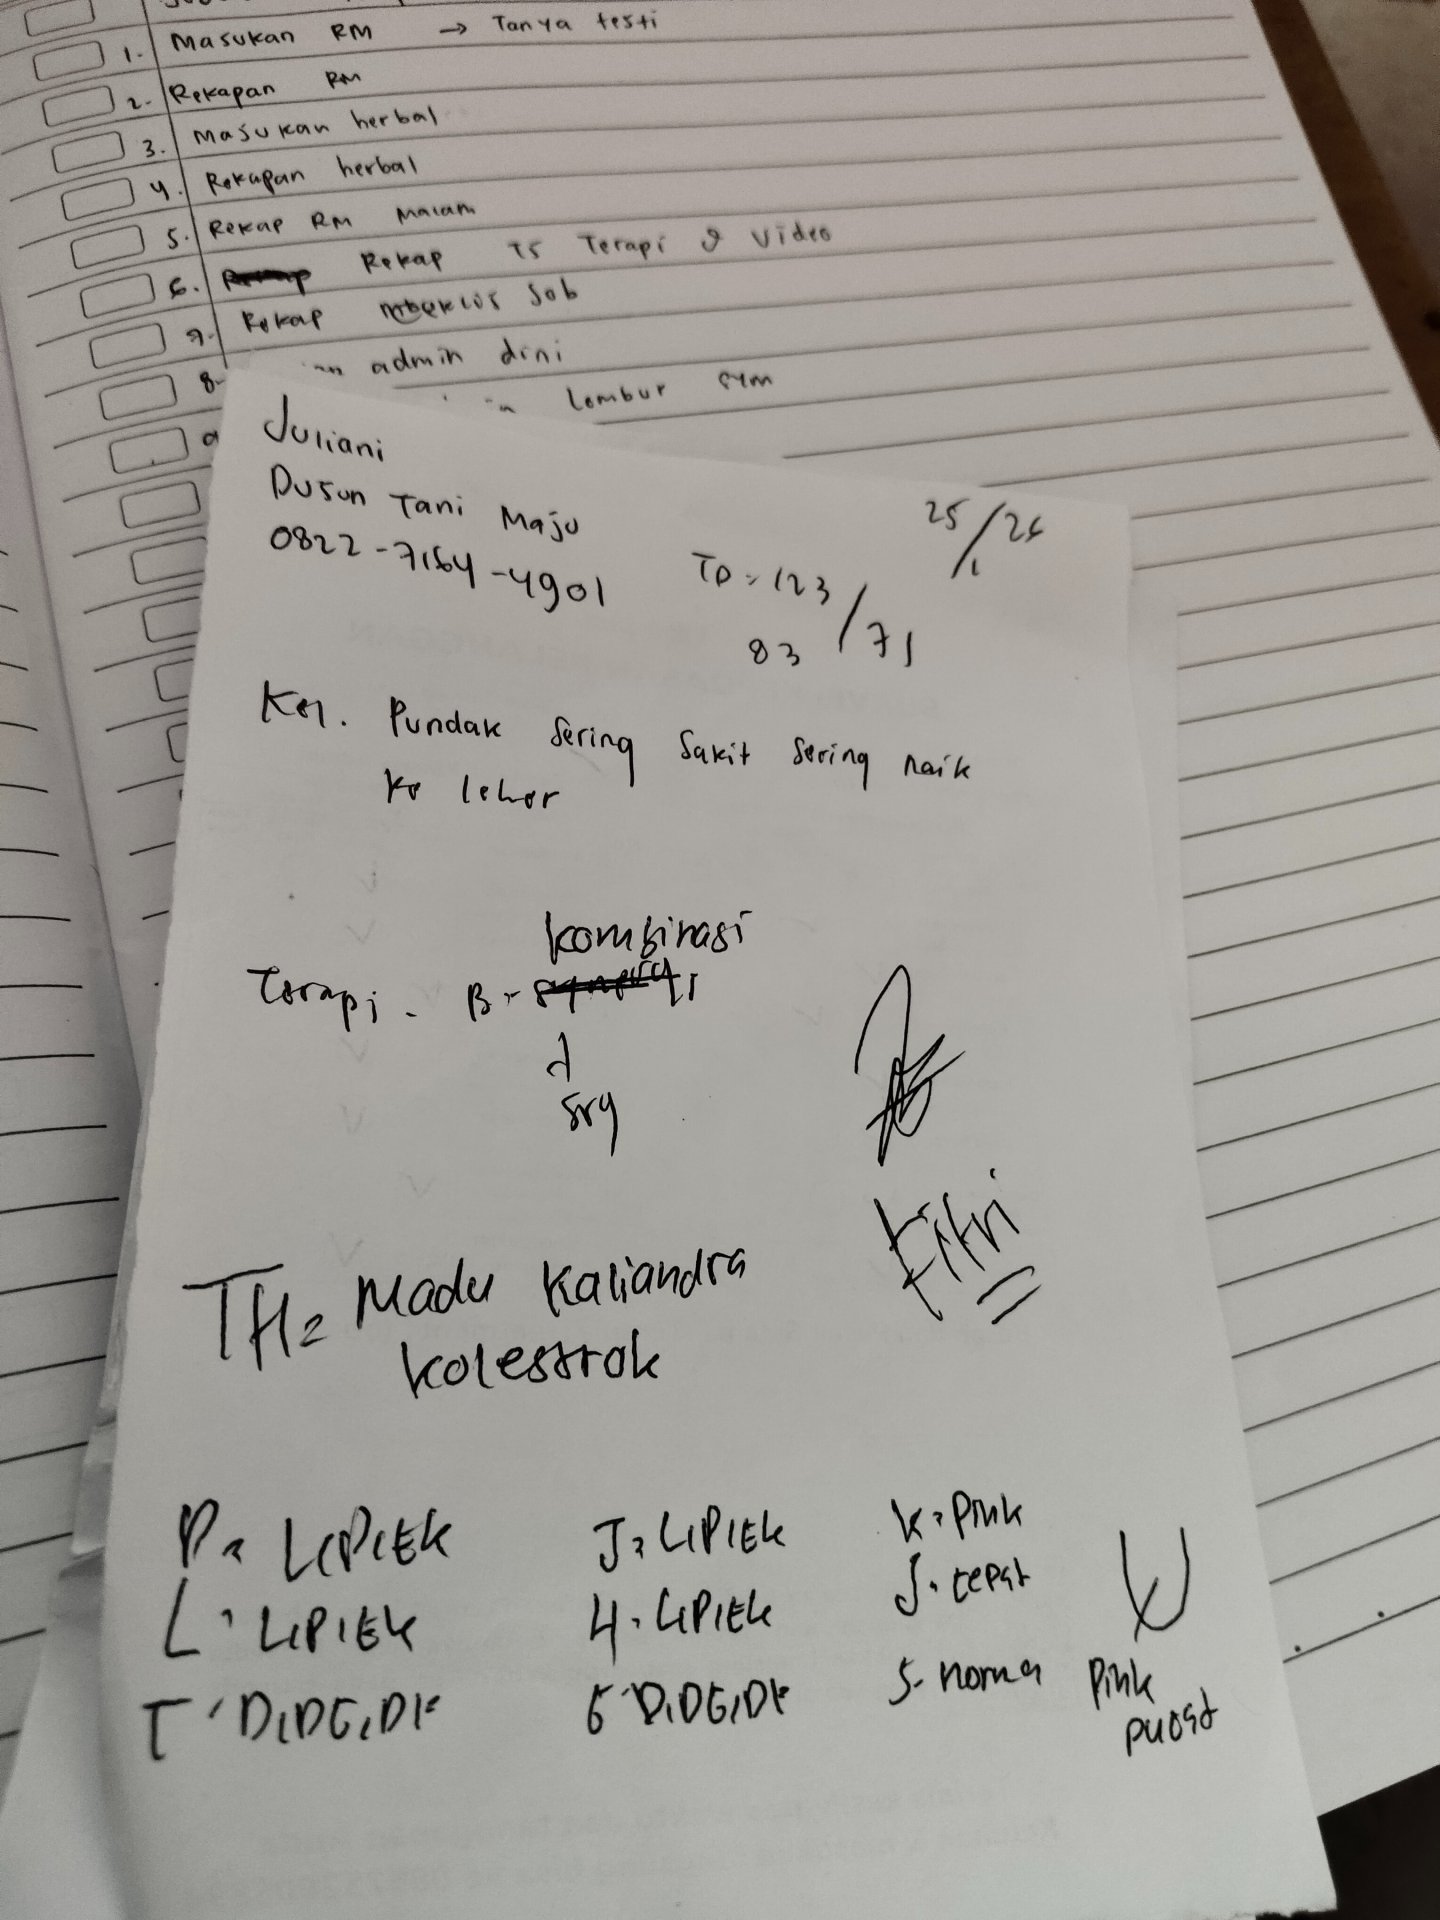 1. Masukan RM → Tanya testi
2. Rekapan RM
3. Masukan herbal
4. Rekapan herbal
5. Rekap RM Malam
6. Rekap TS Terapi & Video
7. Rekap Sob
8. admin dini
9 Lembur
Juliani
Dusun Tani Maju
0822-7164-4901
25/1 26
TD = 123/71
83
Kel. Pundak Sering Sakit Sering naik
ke leher
kombinasi
Terapi. B-
Fitri
TH= Madu Kaliandra
kolestrok
P= LIPIEK J= LIPIEK K= Pink
L= LIPIEK H. LIPIEK J. cepat
T DIDEIDK 5 DIDEIDK S- norma Pink
pucat